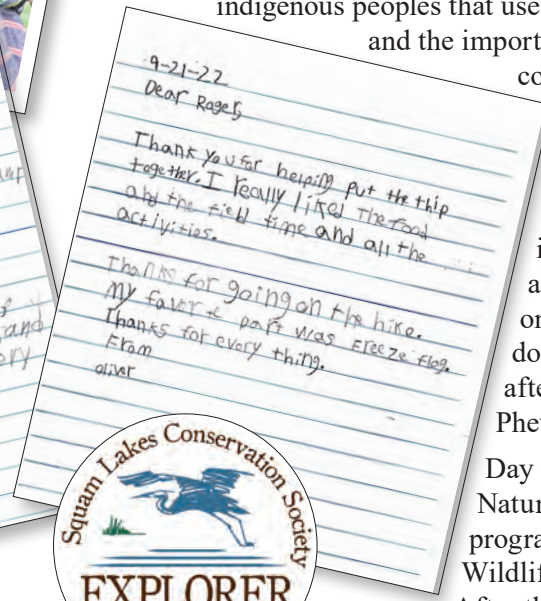 indigenous peoples that use
and the import
co
9-21-22
Dear Roger,
Thank you for helping put the thip
together. I really liked the food
and the field time and all the
activities.
Thanks for going on the hike.
My faverte part was Freeze flag.
Thanks for every thing.
From
oliver
and
i
a
or
do
afte
Phe
Day
Natur
progra
Wildlif
Squam Lakes Conservation Society
EXPLORER